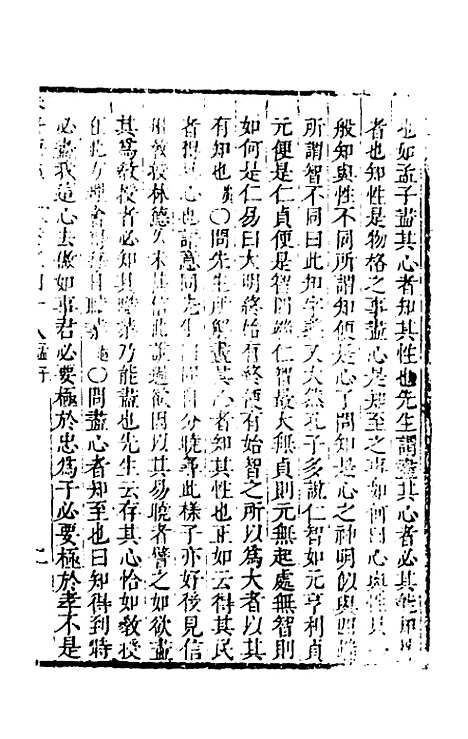 也如孟子盡其心者知其性也先生謂盡其心者必其
者也知性是物格之事盡心是知至之事如何曰心與性只一
般知與性不同所謂知便是心了問知是心之神明似與四端
所謂智不同曰此知字義又大然孔子多說仁智如元亨利貞
元便是仁貞便是智四端仁智最大無貞則元無起處無智則
如何是仁易曰大明終始有終便有始智之所以為大者以其
有知也○問先生所解盡其心者知其性也正如云得其民
者得其心也語意同先生曰固自分曉尋此樣子亦好後見信
州教授林德久未甚信此說過欲因以其易曉者譬之如欲盡
其為教授者必知其職業乃能盡也先生云存其心恰如教授
在此方理會得每日職業○問盡心者知至也曰知得到時
必盡我這心去做如事君必要極於忠為子必要極於孝不是